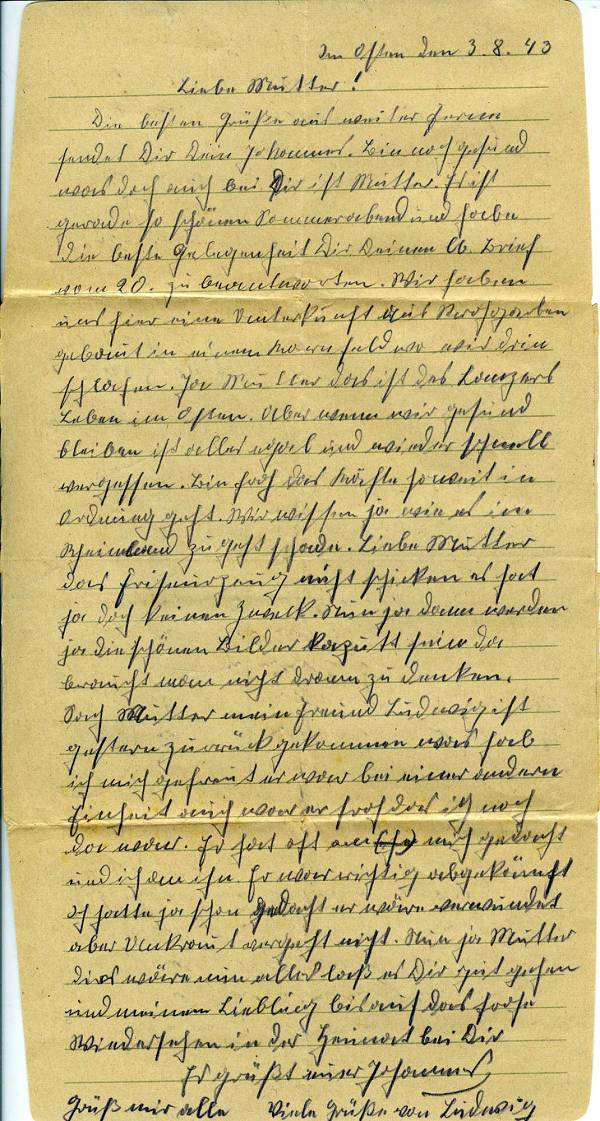 Im Osten den 3.8.43
Liebe Mutter!
Die besten Grüße aus weiter Ferne
sendet Dir Dein Johannes. Bin noch gesund
was doch auch bei Dir ist Mutter. Es ist
gerade so schönen Sommerabend und habe
die beste Gelegenheit Dir Deinen lb. Brief
vom 20. zu beantworten. Wir haben
uns hier eine Unterkunft aus
gebaut in einem feld wo wir drin
schlafen. Ja Mutter das ist des Lanzers
Leben im Osten. Aber wenn wir gesund
bleiben ist alles egal und wieder schnell
vergessen. Bin froh das soweit in
Ordnung geht. Wir wissen ja wie es im
Rheinland zu geht schade. Liebe Mutter
das nicht schicken es hat
ja doch keinen Zweck. Nun ja dann werden
ja die schönen Bilder kaputt sein da
braucht man nicht dran zu denken.
Sag Mutter mein Freund Ludwig ist
gestern zurückgekommen was hab
ich mich gefreut er war bei einer andern
Einheit auch war er froh das ich noch
da war. Er hat oft an mich gedacht
und ich an ihn. Er war richtig abgekämpft
ich hatte ja schon gedacht er wäre verwundet
aber Unkraut vergeht nicht. Nun ja Mutter
dies wäre nun alles laß es Dir gut gehen
und meinem Liebling bis auf das frohe
Wiedersehen in der Heimat bei Dir
Es grüßt euer Johannes
Grüß mir alle Viele Grüße von Ludwig